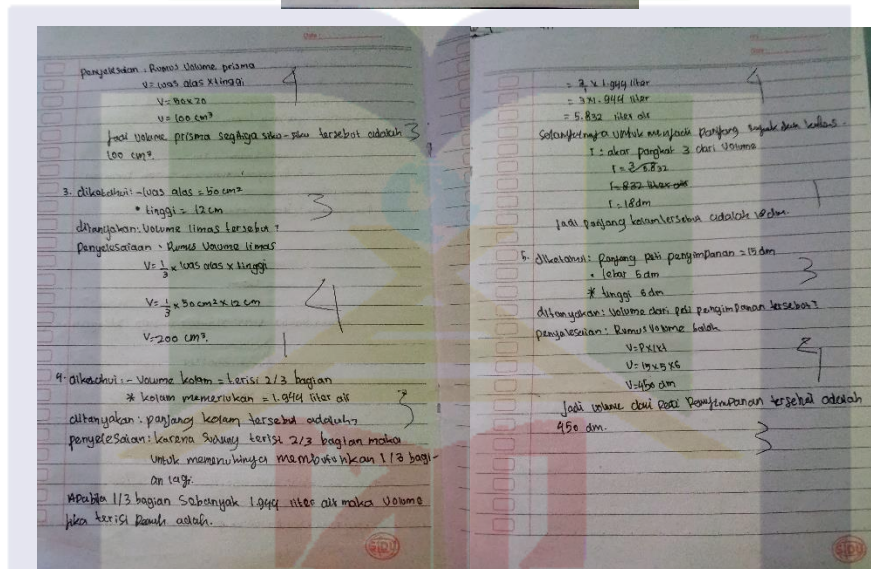 penyelesaian : Rumus volume prisma
V = luas alas x tinggi
V = 50 x 20
V = 100 cm³
4
Jadi volume prisma segitiga siku-siku tersebut adalah
100 cm³.
3
3. diketahui: - luas alas = 50 cm²
• tinggi = 12 cm
3
ditanyakan: Volume limas tersebut?
Penyelesaian : Rumus Volume limas
V = 1/3 x luas alas x tinggi
V = 1/3 x 50 cm² x 12 cm
4
V = 200 cm³.
1
4. diketahui: - Volume kolam = terisi 2/3 bagian
* kolam memerlukan = 1.944 liter air
3
ditanyakan: panjang kolam tersebut adalah?
penyelesaian: karena sudung terisi 2/3 bagian maka
untuk memenuhinya membutuhkan 1/3 bagi-
an lagi.
Apabila 1/3 bagian sebanyak 1.944 liter air maka volume
jika terisi penuh adalah.
SIDU
= 3/1 x 1.944 liter
= 3 x 1.944 liter
= 5.832 liter air
4
Selanjutnya untuk mencari panjang
r : akar pangkat 3 dari volume
r = 3√5.832
r = 832 liter air
r = 18 dm
1
Jadi panjang kolam tersebut adalah 18 dm.
5. diketahui: Panjang peti penyimpanan = 15 dm
• lebar 5 dm
* tinggi 6 dm
3
ditanyakan: Volume dari peti penyimpanan tersebut?
penyelesaian: Rumus Volume balok
V = P x l x t
V = 15 x 5 x 6
V = 450 dm
4
Jadi volume dari Peti Penyimpanan tersebut adalah
450 dm.
3
SIDU